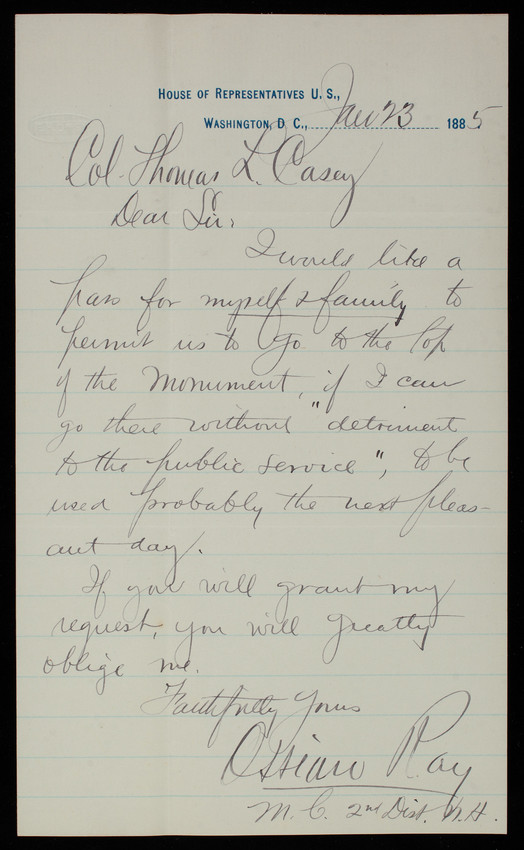 House of Representatives U. S.,
Washington, D. C., Jan 23 1885
Col. Thomas L. Casey
Dear Sir,
I would like a
pass for myself & family to
permit us to go to the top
of the Monument, if I can
go there without "detriment
to the public service", to be
used probably the next pleas-
ant day.
If you will grant my
request, you will greatly
oblige me.
Faithfully Yours
Ossian Ray
M. C. 2nd Dist. N.H.